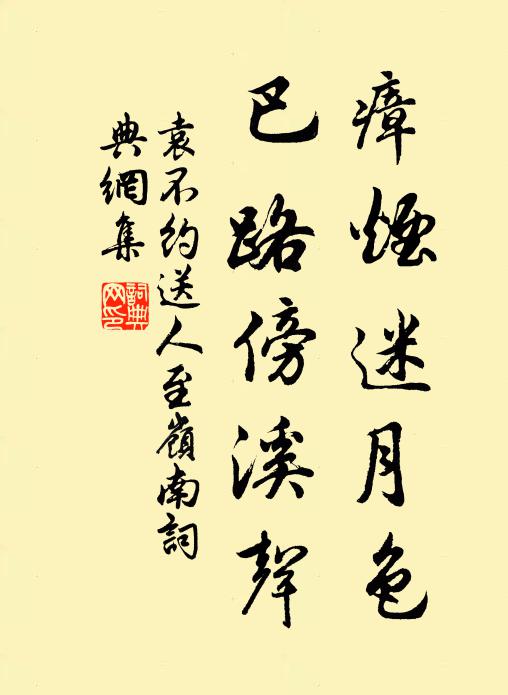 瘴煙迷月色
巴路傍溪聲
袁不約送人至嶺南詞
典網集
詞典
网印